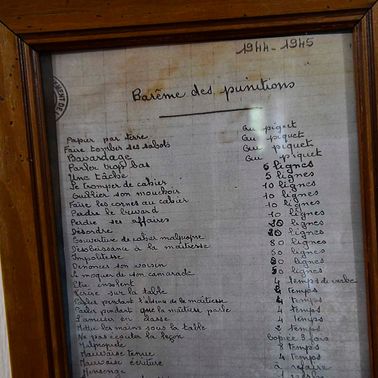 1944-1945
Barême des punitions
Papier par terre Au piquet
Faire tomber ses sabots Au piquet
Bavardage Au piquet
Parler trop bas Au piquet
Une tâche 5 lignes
Se tromper de cahier 5 lignes
Oublier son mouchoir 10 lignes
Faire les cornes au cahier 10 lignes
Perdre le buvard 10 lignes
Perdre ses affaires 10 lignes
Désordre lignes
Couverture de cahier malpropre lignes
Désobéissance à la maîtresse lignes
Impolitesse lignes
Dénoncer son voisin lignes
Se moquer de son camarade lignes
Etre insolent 4 temps de verbe
Ecrire sur la table temps
Parler pendant l'absence de la maîtresse 4 temps
Parler pendant que la maîtresse parle 4 temps
S'amuser en classe 4 temps
Mettre les mains sous la table temps
Ne pas écouter la leçon Copiée 3 fois
Malpropreté temps
Mauvaise tenue 4 temps
Mauvaise écriture à refaire
Mensonge